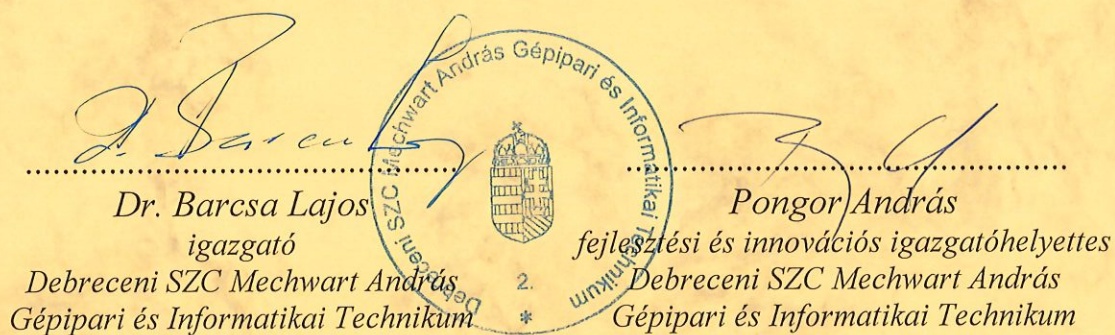 Debreceni SZC Mechwart András Gépipari és Informatikai Technikum
2.
*
Dr. Barcsa Lajos
igazgató
Debreceni SZC Mechwart András
Gépipari és Informatikai Technikum
Pongor András
fejlesztési és innovációs igazgatóhelyettes
Debreceni SZC Mechwart András
Gépipari és Informatikai Technikum